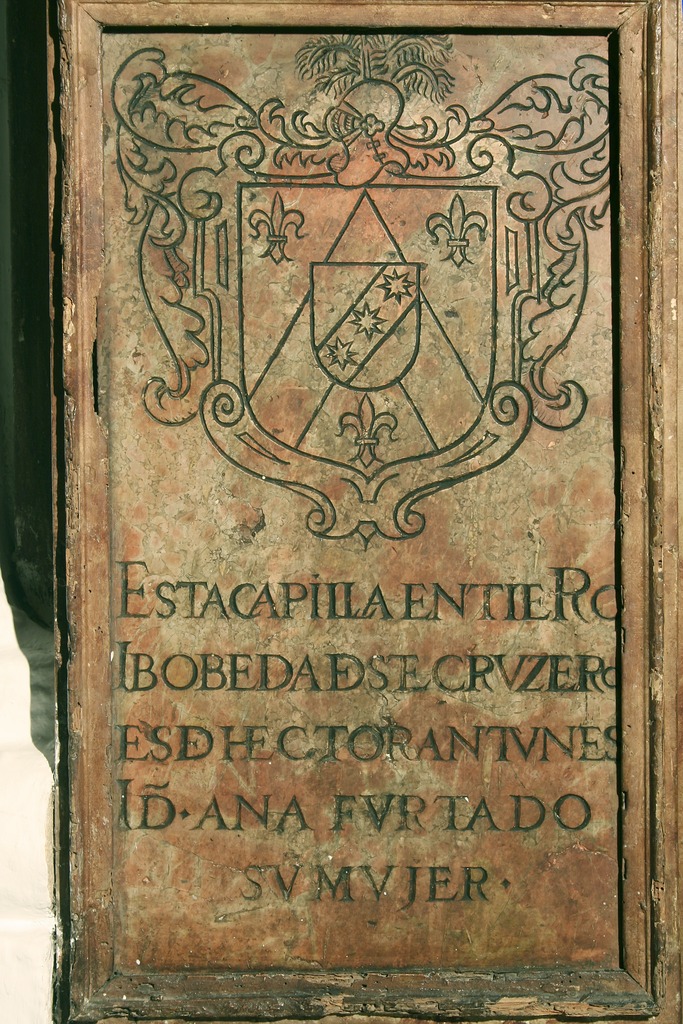 ESTA CAPILLA ENTIERO
I BOBEDA DESTE CRVZERO
ES DE HECTOR ANTVNES
I D̄· ANA FVRTADO
SV MVJER·